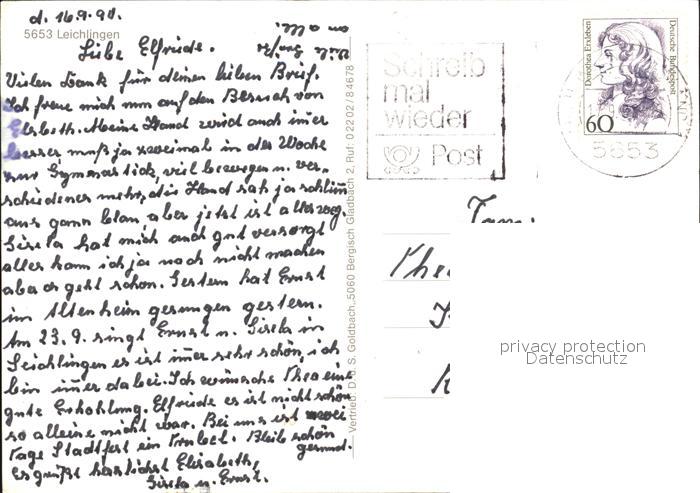 d. 16.9.91.
5653 Leichlingen
Liebe Elfriede.
Viele Grüße
an alle
Vielen Dank für deinen lieben Brief.
Ich freue mich nun auf den Besuch von
Elsbeth. Meine Hand wird auch imer
besser, muß ja zweimal in der Woche
zur Gymnastick, viel bewegen u. ver-
schiedenes mehr, die Hand sah ja schlim
aus ganz blau aber jetzt ist alles weg.
Gisela hat mich auch gut versorgt
alles kann ich ja noch nicht machen
aber es geht schon. Gestern hat Ernst
im Altenheim gesungen gestern.
Am 23.9. singt Ernst u. Gisela in
Leichlingen es ist imer sehr schön, ich
bin imer dabei. Ich wünsche Theo eine
gute Erholung. Elfriede es ist nicht schön
so alleine nicht war. Bei uns ist zwei
Tage Stadtfest ein Trubel. Bleib schön
gesund.
Es grüßt herzlichst Elisabeth,
Gisela u. Ernst.
Vertrieb: D. u. S. Goldbach, 5060 Bergisch Gladbach 2, Ruf: 02202/84678
Schreib
mal
wieder
Post
Dorothea Erxleben
Deutsche Bundespost
60
5653
Fam.
privacy protection
Datenschutz